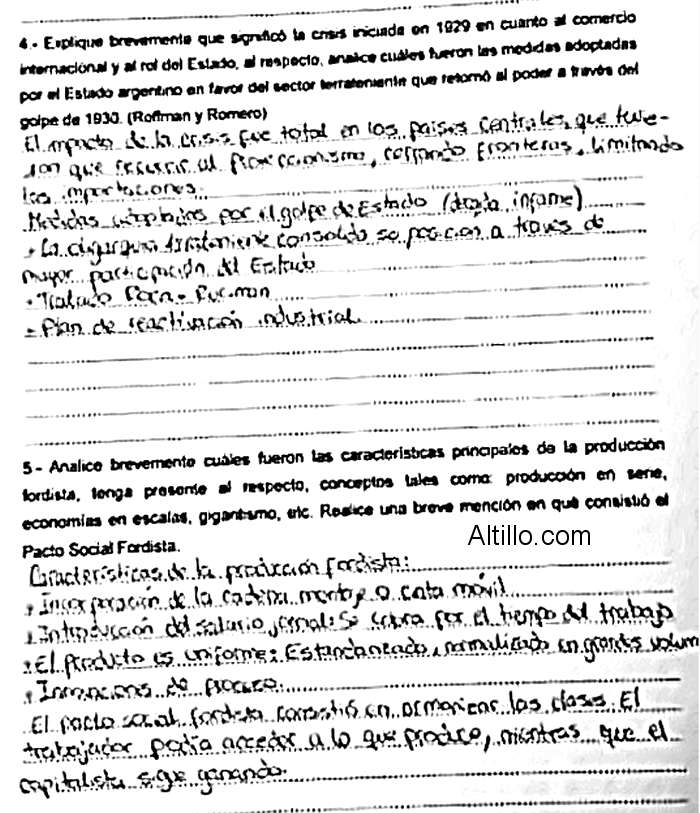 4.- Explique brevemente que significó la crisis iniciada en 1929 en cuanto al comercio
internacional y al rol del Estado, al respecto, analice cuáles fueron las medidas adoptadas
por el Estado argentino en favor del sector terrateniente que retornó al poder a través del
golpe de 1930. (Roffman y Romero)
El impacto de la crisis fue total en los países centrales, que tuvie-
ron que recurrir al proteccionismo, cerrando fronteras, limitando
las importaciones.
Medidas adoptadas por el golpe de Estado (década infame)
• La oligarquía terrateniente consolidó su posición a través de
mayor participación del Estado
• Tratado Roca-
- Plan de reactivación industrial.
5 - Analice brevemente cuáles fueron las características principales de la producción
fordista, tenga presente al respecto, conceptos tales como: producción en serie,
economías en escalas, gigantismo, etc. Realice una breve mención en qué consistió el
Pacto Social Fordista.
Altillo.com
Características de la producción fordista:
• Incorporación de la cadena montaje o cinta móvil
• Introducción del salario jornal: Se cobra por el tiempo del trabajo
• El producto es uniforme: Estandarizado, normalizado en grandes volum
• Innovaciones de proceso.
El pacto social fordista consistió en armonizar las clases. El
trabajador podía acceder a lo que produce, mientras que el
capitalista sigue ganando.